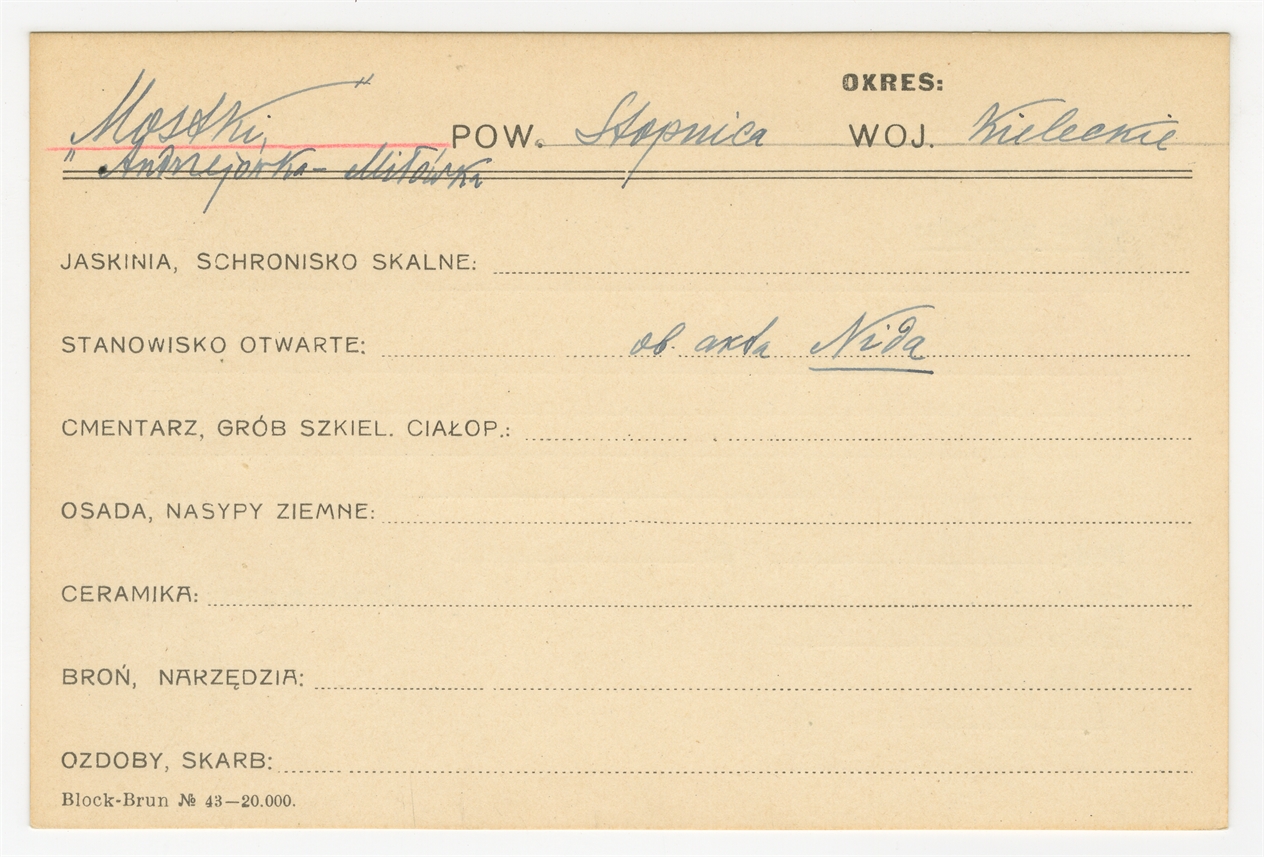 OKRES:
Mostki, " POW. Stopnica WOJ. Kieleckie
" Andrzejówka - Miłówka
JASKINIA, SCHRONISKO SKALNE:
STANOWISKO OTWARTE: ob. akta Nida
CMENTARZ, GRÓB SZKIEL. CIAŁOP.:
OSADA, NASYPY ZIEMNE:
CERAMIKA:
BROŃ, NARZĘDZIA:
OZDOBY, SKARB:
Block-Brun № 43—20.000.